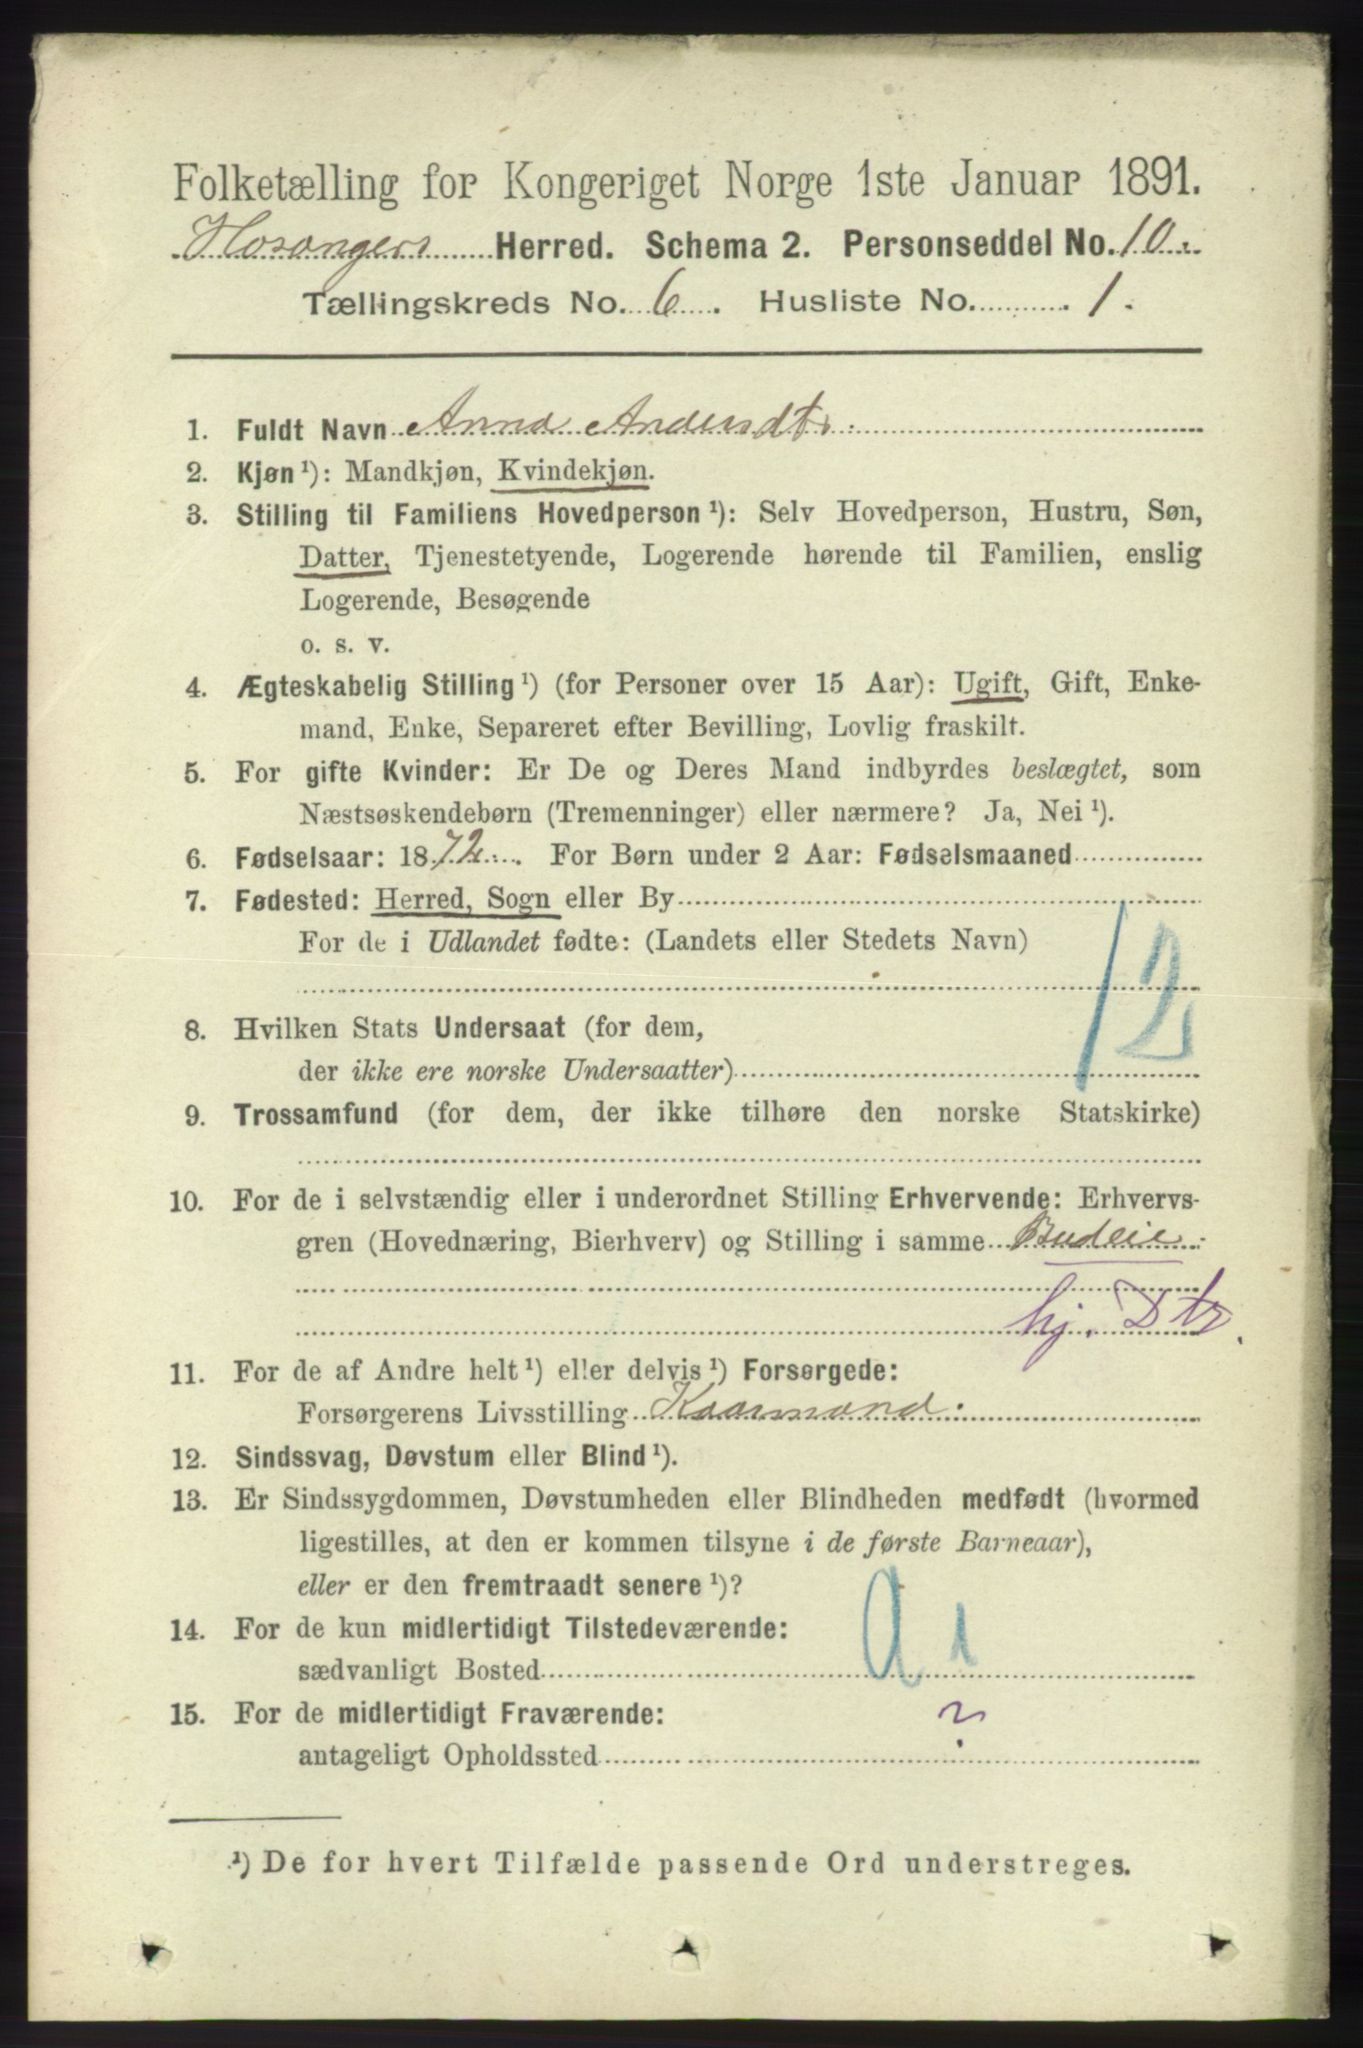 Folketælling for Kongeriget Norge 1ste Januar 1891.
Hosangers Herred. Schema 2. Personseddel No. 10.
Tællingskreds No. 6. Husliste No. 1.
1. Fuldt Navn Anna Andersdtr.
2. Kjøn ¹): Mandkjøn, Kvindekjøn.
3. Stilling til Familiens Hovedperson ¹): Selv Hovedperson, Hustru, Søn,
Datter, Tjenestetyende, Logerende hørende til Familien, enslig
Logerende, Besøgende
o. s. v.
4. Ægteskabelig Stilling ¹) (for Personer over 15 Aar): Ugift, Gift, Enke-
mand, Enke, Separeret efter Bevilling, Lovlig fraskilt.
5. For gifte Kvinder: Er De og Deres Mand indbyrdes beslægtet, som
Næstsøskendebørn (Tremenninger) eller nærmere? Ja, Nei ¹).
6. Fødselsaar: 1872. For Børn under 2 Aar: Fødselsmaaned
7. Fødested: Herred, Sogn eller By
For de i Udlandet fødte: (Landets eller Stedets Navn)
12
8. Hvilken Stats Undersaat (for dem,
der ikke ere norske Undersaatter)
9. Trossamfund (for dem, der ikke tilhøre den norske Statskirke)
10. For de i selvstændig eller i underordnet Stilling Erhvervende: Erhvervs-
gren (Hovednæring, Bierhverv) og Stilling i samme Budeie
hj. Dtr.
11. For de af Andre helt ¹) eller delvis ¹) Forsørgede:
Forsørgerens Livsstilling Kaarmand.
12. Sindssvag, Døvstum eller Blind ¹).
13. Er Sindssygdommen, Døvstumheden eller Blindheden medfødt (hvormed
ligestilles, at den er kommen tilsyne i de første Barneaar),
eller er den fremtraadt senere ¹)?
a 1
14. For de kun midlertidigt Tilstedeværende:
sædvanligt Bosted
15. For de midlertidigt Fraværende:
?
antageligt Opholdssted
¹) De for hvert Tilfælde passende Ord understreges.